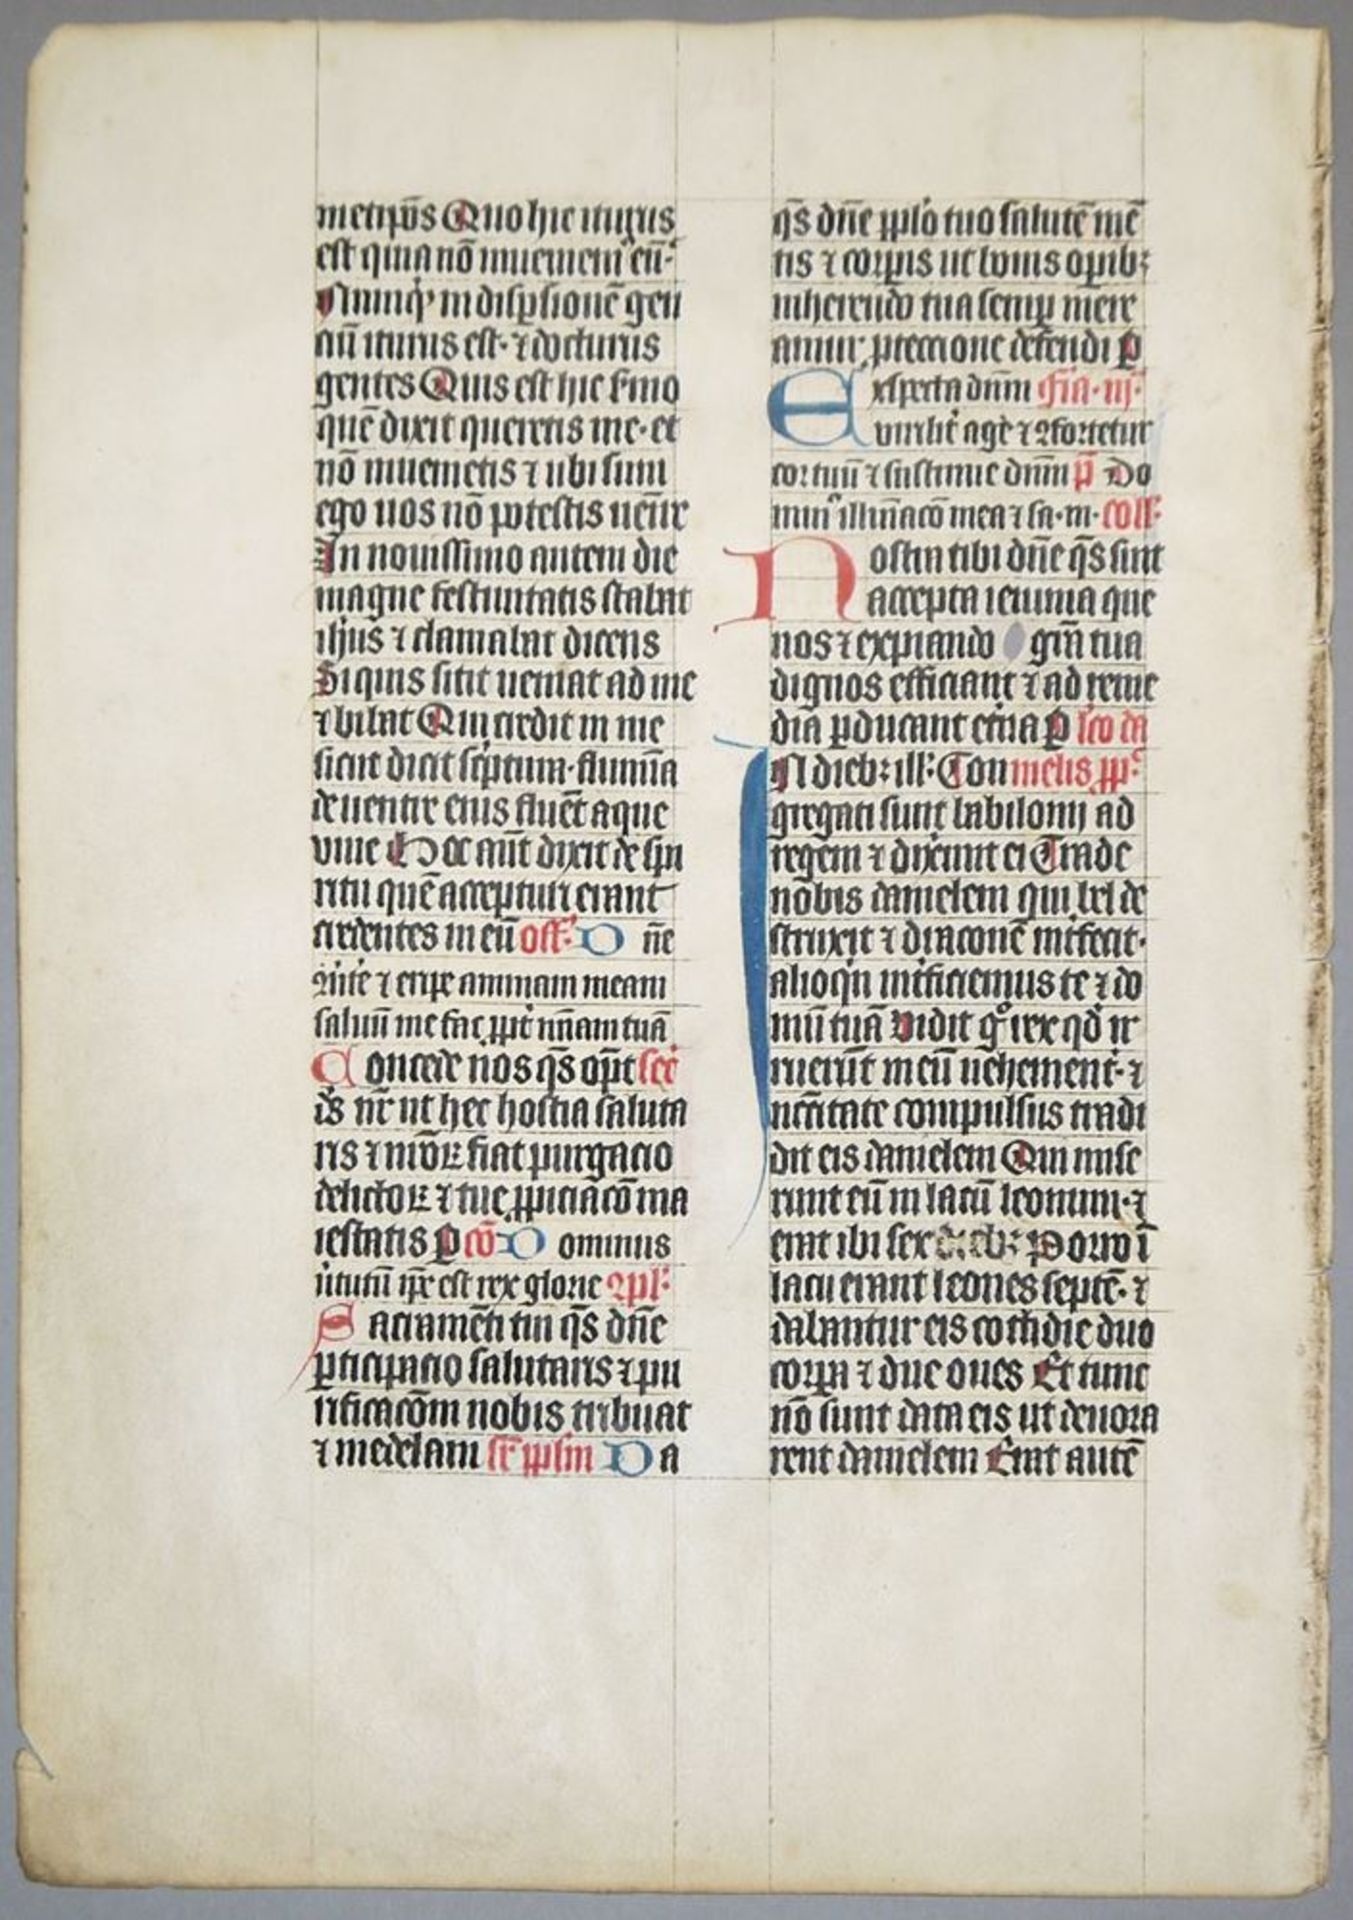 metip̄os Quo hic iturus
est quia nō inueniem̄ eū·
Nunq' in disp̱sionē gen
ciū iturus est· ⁊ docturus
gentes Quis est hic s̄mo
quē dixit queretis me· et
nō inuenietis ⁊ ubi sum
ego uos nō potestis uenīr
In nouissimo autem die
magne festiuitatis stabat
ih̄us ⁊ clamabat dicens
Si quis sitit ueniat ad me
⁊ bibat Qui credit in me
sicut dicit sc̄ptura· flumīa
de uentre eius fluēt aque
viue Hoc aūt dixit de spi
ritu quē accepturi erant
credentes in eū off· D n̄e
⁊ eripe animam meam
saluū me fac ꝓpt̄ mīam tuā
Concede nos q̄s om̄pt sec̄
d̄s nr̄ ut hec hostia saluta
ris ⁊ nr̄oꝝ fiat purgacio
delictoꝝ ⁊ tue ꝓpiciacō ma
iestatis ꝑ cō Dominus
uirtutū ip̄e est rex glorie ꝯpl·
Sacramēti tui q̄s dn̄e
ꝑticipacio salutaris ⁊ pu
rificacōm nobis tribuat
⁊ medelam sr̄ ppl̄m Da
q̄s dn̄e ppl̄o tuo salutē mē
tis ⁊ corꝑis ut bonis opib;
inherendo tua semꝑ mere
amur ꝓteccione defendi ꝑ
Exspecta dn̄m fīa· iij·
viriliť age ⁊ ꝯfortetur
cor tuū ⁊ sustine dn̄m p̄ Do
min' illu̅nacō mea ⁊ sa· m· coll·
Nostra tibi dn̄e q̄s sint
accepta ieiunia que
nos ⁊ expiando grā tua
dignos efficiant ⁊ ad reme
dia ꝑducant et̄na ꝑ lc̄o da
IN dieb; ill· Con nielis ꝓp̄·
gregati sunt babilonij ad
regem ⁊ dixerunt ei Trade
nobis danielem qui bel de
struxit ⁊ draconē int̄fecit·
alioq̇n int̄ficiemus te ⁊ do
mū tuā Vidit g° rex qd̄ ir
ruerūt in eū uehement̄· ⁊
nec̄itate compulsus tradi
dit eis danielem Qui mise
runt eū in lacū leonum· ⁊
erat ibi sex dieb; Porro ī
lacu erant leones septē· ⁊
dabantur eis cotidie duo
corꝑa ⁊ due oues Et tunc
nō sunt data eis ut deuora
rent danielem Erat autē